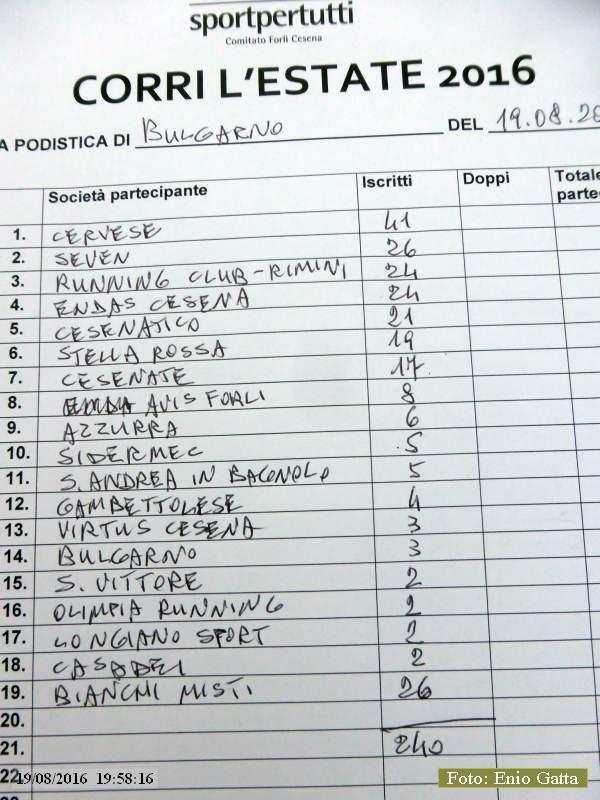 sportpertutti
Comitato Forlì Cesena
CORRI L'ESTATE 2016
A PODISTICA DI BULGARNO DEL 19.08.20
Società partecipante Iscritti Doppi Totale parte
1. CERVESE 41
2. SEVEN 26
3. RUNNING CLUB-RIMINI 24
4. ENDAS CESENA 24
5. CESENATICO 21
6. STELLA ROSSA 19
7. CESENATE 17
8. AVIS FORLI 8
9. AZZURRA 6
10. SIDERMEC 5
11. S. ANDREA IN BAGNOLO 5
12. GAMBETTOLESE 4
13. VIRTUS CESENA 3
14. BULGARNO 3
15. S. VITTORE 2
16. OLIMPIA RUNNING 2
17. LONGIANO SPORT 2
18. CASADEI 2
19. BIANCHI MISTI 26
20.
21. 240
22
19/08/2016 19:58:16
Foto: Enio Gatta